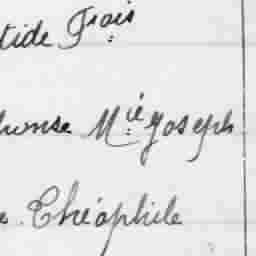 tide Frois
Mie Joseph
e Théophile